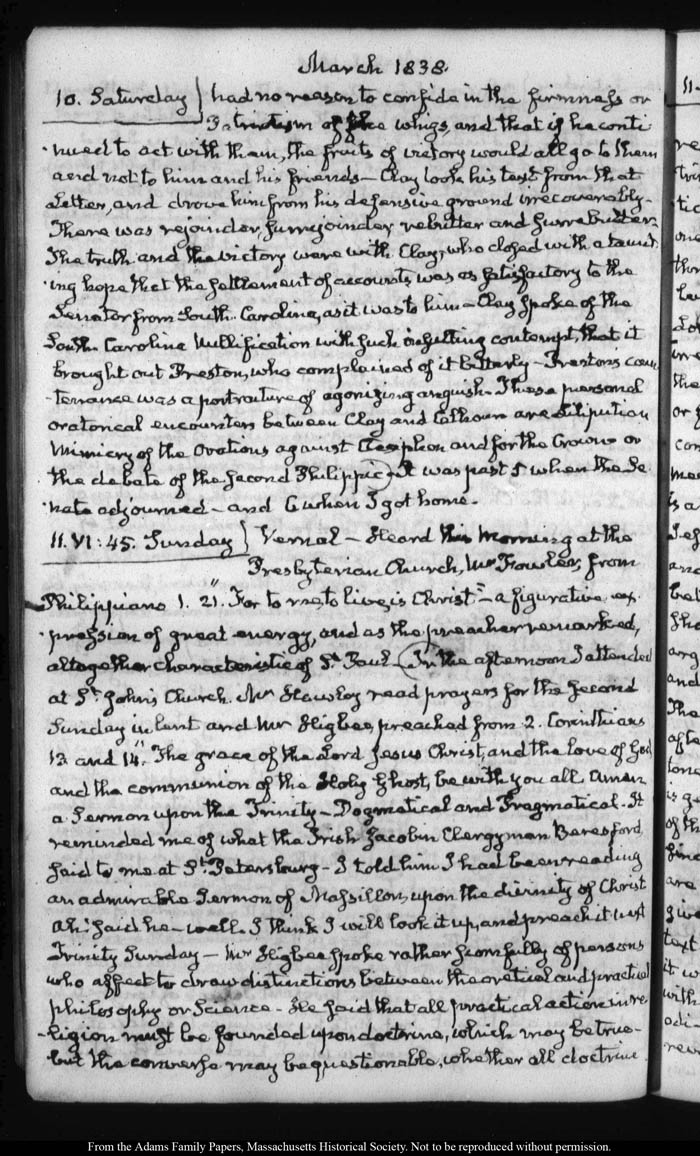 March 1838.
10. Saturday } had no reason to confide in the firmness or
Patriotism of the whigs, and that if he conti
nued to act with them, the fruits of victory would all go to them
and not to him and his friends — Clay took his text from that
Letter, and drove him from his defensive ground irrecoverably —
There was rejoinder, surrejoinder rebutter and surrebutter.
The truth and the victory were with Clay, who closed with a taunt
ing hope that the settlement of accounts was as satisfactory to the
Senator from South Carolina, as it was to him — Clay spoke of the
South Carolina Nullification with such insulting contempt, that it
brought out Preston, who complained of it bitterly — Preston's coun
-tenance was a portraiture of agonizing anguish. These personal
oratorical encounters between Clay and Calhoun are Lilliputian
Mimicry of the Orations against Ctesiphon and for the Crown or
the debate of the second Philippic. It was past 5 when the Se
nate adjourned — and 6 when I got home.
11. VI:45. Sunday } Vernal — Heard this Morning at the
Presbyterian Church, Mr Fowler, from
Philippians 1. 21. "For to me to live, is Christ" — a figurative ex
pression of great energy, and as the preacher remarked,
altogether characteristic of St. Paul — In the afternoon I attended
at St. John's Church. Mr Hawley read prayers for the Second
Sunday in Lent and Mr Higbee, preached from 2. Corinthians
13 and 14. "The grace of the Lord Jesus Christ, and the love of God
and the communion of the Holy Ghost, be with you all. Amen
a Sermon upon the Trinity — Dogmatical and Pragmatical. It
reminded me of what the Irish Jacobin Clergyman Beresford,
said to me at St. Petersburg — I told him I had been reading
an admirable Sermon of Massillon, upon the divinity of Christ
Ah! said he — well. I think I will look it up, and preach it next
Trinity Sunday — Mr Higbee spoke rather scornfully of persons
who affect to draw distinctions between theoretical and practical
philosophy or Science — He said that all practical action in re
-ligion must be founded upon doctrine, which may be true —
but the converse may be questionable, whether all doctrine
From the Adams Family Papers, Massachusetts Historical Society. Not to be reproduced without permission.